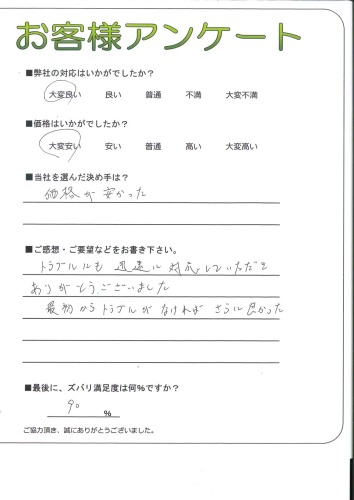 お客様アンケート
■弊社の対応はいかがでしたか？
大変良い 良い 普通 不満 大変不満
■価格はいかがでしたか？
大変安い 安い 普通 高い 大変高い
■当社を選んだ決め手は？
価格が安かった
■ご感想・ご要望などをお書き下さい。
トラブルにも迅速に対応していただき
ありがとうございました
最初からトラブルがなければさらに良かった
■最後に、ズバリ満足度は何％ですか？
90 ％
ご協力頂き、誠にありがとうございました。